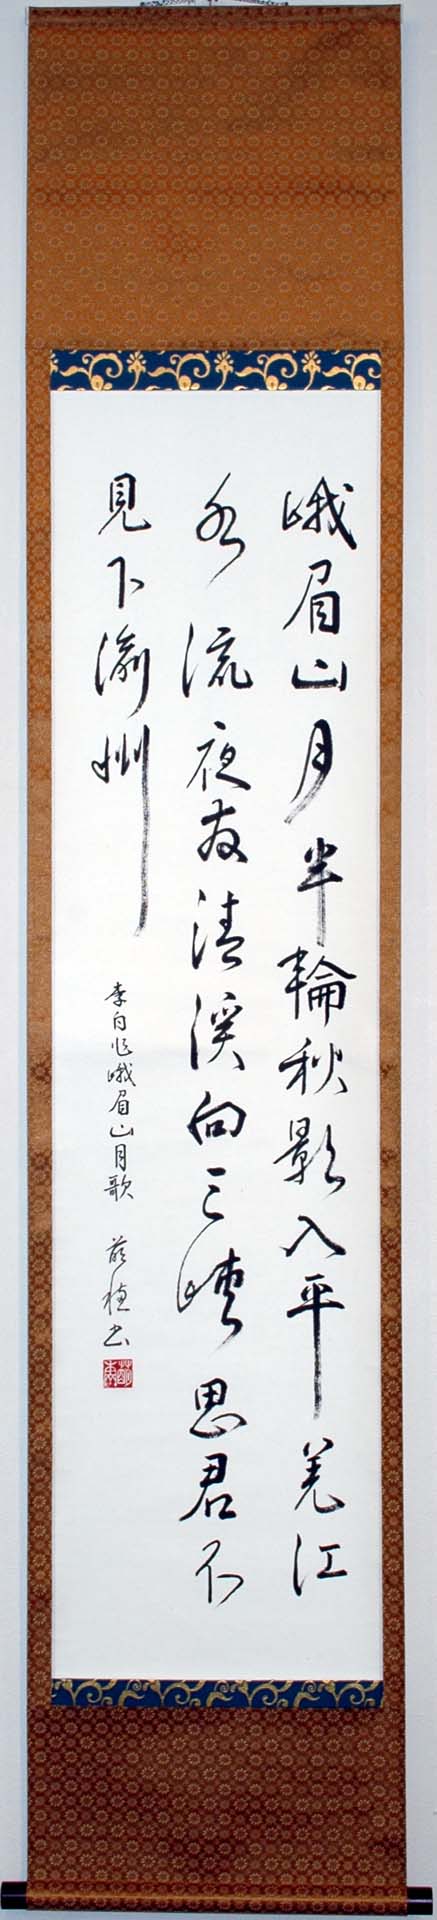 峨眉山月半輪秋影入平羌江
水流夜發清溪向三峽思君不
見下渝州
李白作峨眉山月歌
書